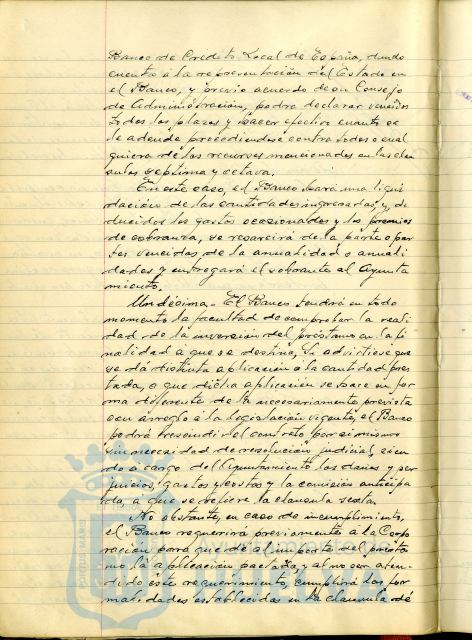 Banco de Crédito Local de España, dando
cuenta á la representación del Estado en
el Banco, y previo acuerdo de su Consejo
de Administración, podra declarar vencidos
todos los plazos y hacer efectivo cuanto se
le adeude procediendose contra todos o cual
quiera de los recursos mencionados en las cláu
sulas septima y octava.
En este caso, el Banco hará una liqui
dación de las cantidades ingresadas y, de
ducidos los gastos ocasionados y los premios
de cobranza, se resarcirá de la parte o par
tes vencidas de la anualidad o anuali
dades y entregará el sobrante al Ayunta
miento.
Undécima - El Banco tendrá en todo
momento la facultad de comprobar la reali
dad de la inversión del préstamo en la fi
nalidad á que se destina. Si advirtiese que
se dá distinta aplicación á la cantidad pres
tada, o que dicha aplicación se hace en for
ma diferente de la necesariamente prevista
con arreglo á la legislación vigente, el Banco
podrá rescindir el contrato por si mismo
sin necesidad de resolución judicial, sien
do á cargo del Ayuntamiento los daños y per
juicios, gastos y costas y la comisión anticipa
da a que se refiere la clausula sexta.
No obstante, en caso de incumplimiento,
el Banco requerirá previamente á la Corpo
ración para que dé al importe del présta
mo la aplicación pactada, y al no ser aten
dido éste requerimiento, cumplirá las for
malidades establecidas en la clausula dé